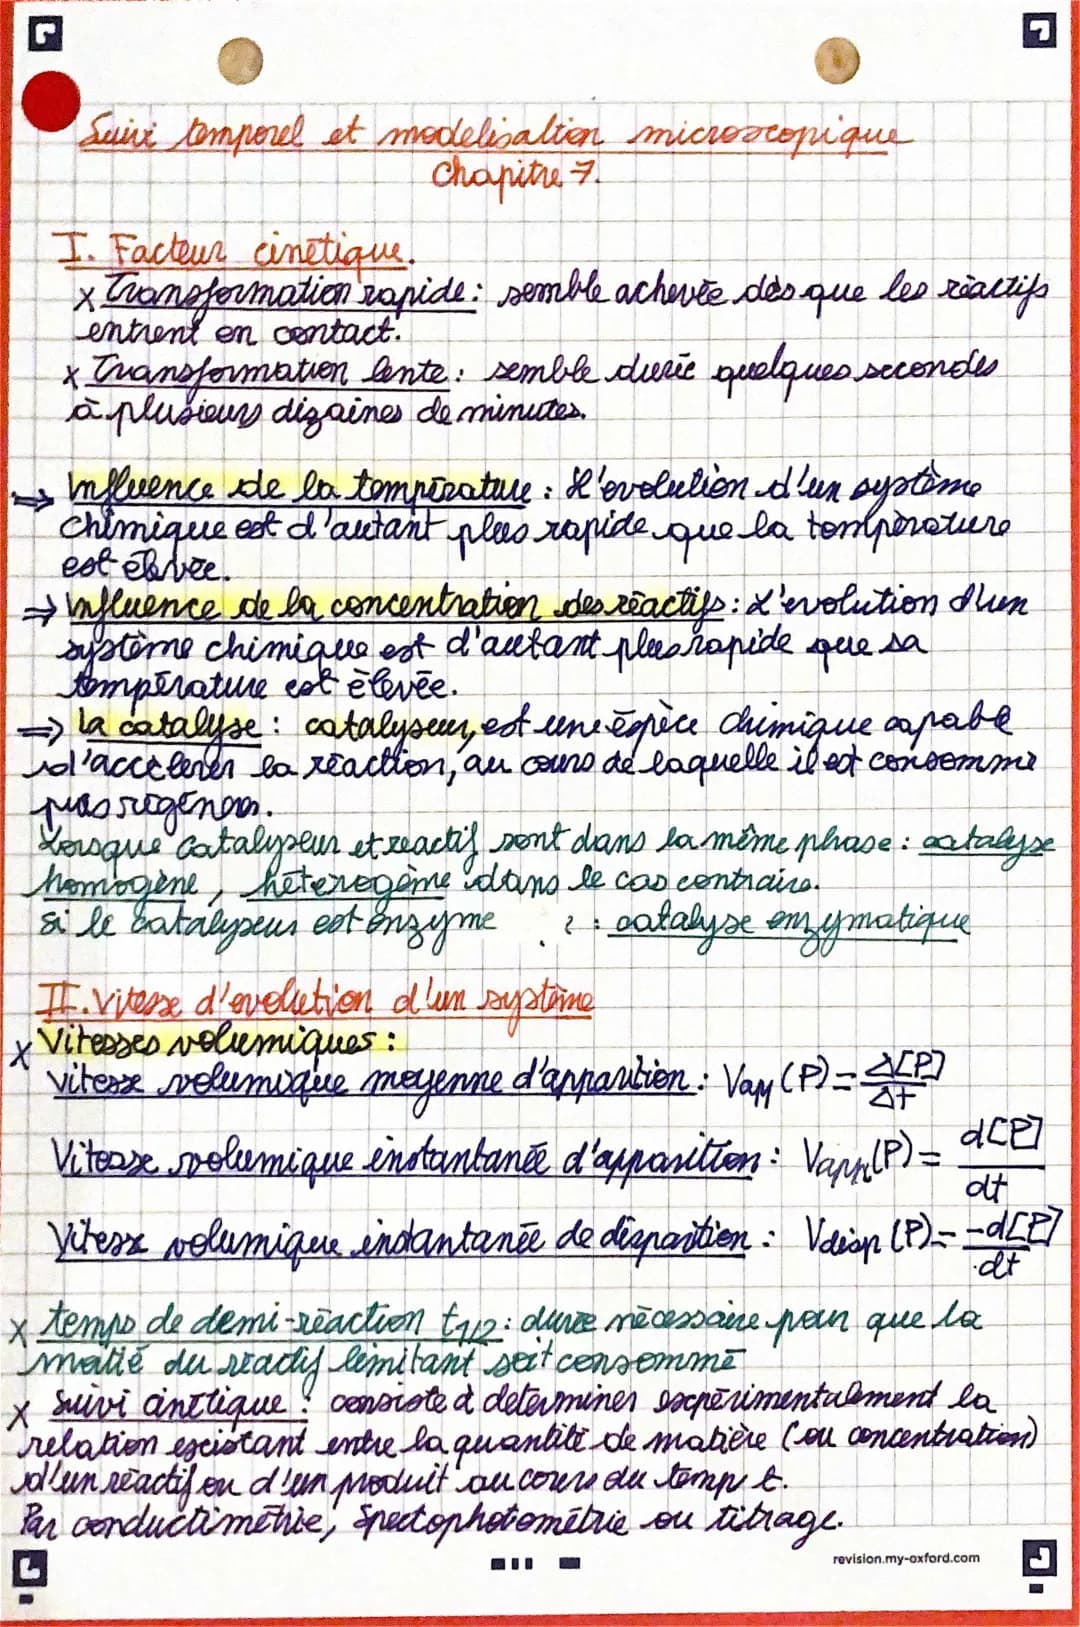 Suivi temporel et modélisation microscopique
Chapitre 7.
I. Facteur cinétique.
x Transformation rapide : semble achevée dès que les réactifs
entrent en contact.
x Transformation lente : semble durée quelques secondes
à plusieurs dizaines de minutes.
⇒ Influence de la température : L'évolution d'un système
chimique est d'autant plus rapide que la température
est élevée.
⇒ Influence de la concentration des réactifs : L'évolution d'un
système chimique est d'autant plus rapide que sa
température est élevée.
⇒ La catalyse : catalyseur, est une éspèce chimique capable
d'accélérer la réaction, au cours de laquelle il est consommé
puis
Lorsque catalyseur et reactif sont dans la même phase : catalyse
homogène, hétérogène dans le cas contraire.
Si le catalyseur est enzyme : catalyse enzymatique
II. Vitesse d'évolution d'un système
x Vitesses volumiques :
Vitesse volumique moyenne d'apparition : Vapp (P) = Δ[P]/Δt
Vitesse volumique instantanée d'apparition : Vapp(P) = d[P]/dt
Vitesse volumique instantanée de disparition : Vdisp (P) = -d[P]/dt
x temps de demi-réaction t1/2 : durée nécessaire pour que la
moitié du réactif limitant soit consommé
x Suivi cinétique : consiste à déterminer expérimentalement la
relation existant entre la quantité de matière (ou concentration)
d'un réactif ou d'un produit au cours du temp t.
Par conductimétrie, Spectophotométrie ou titrage.
revision.my-oxford.com